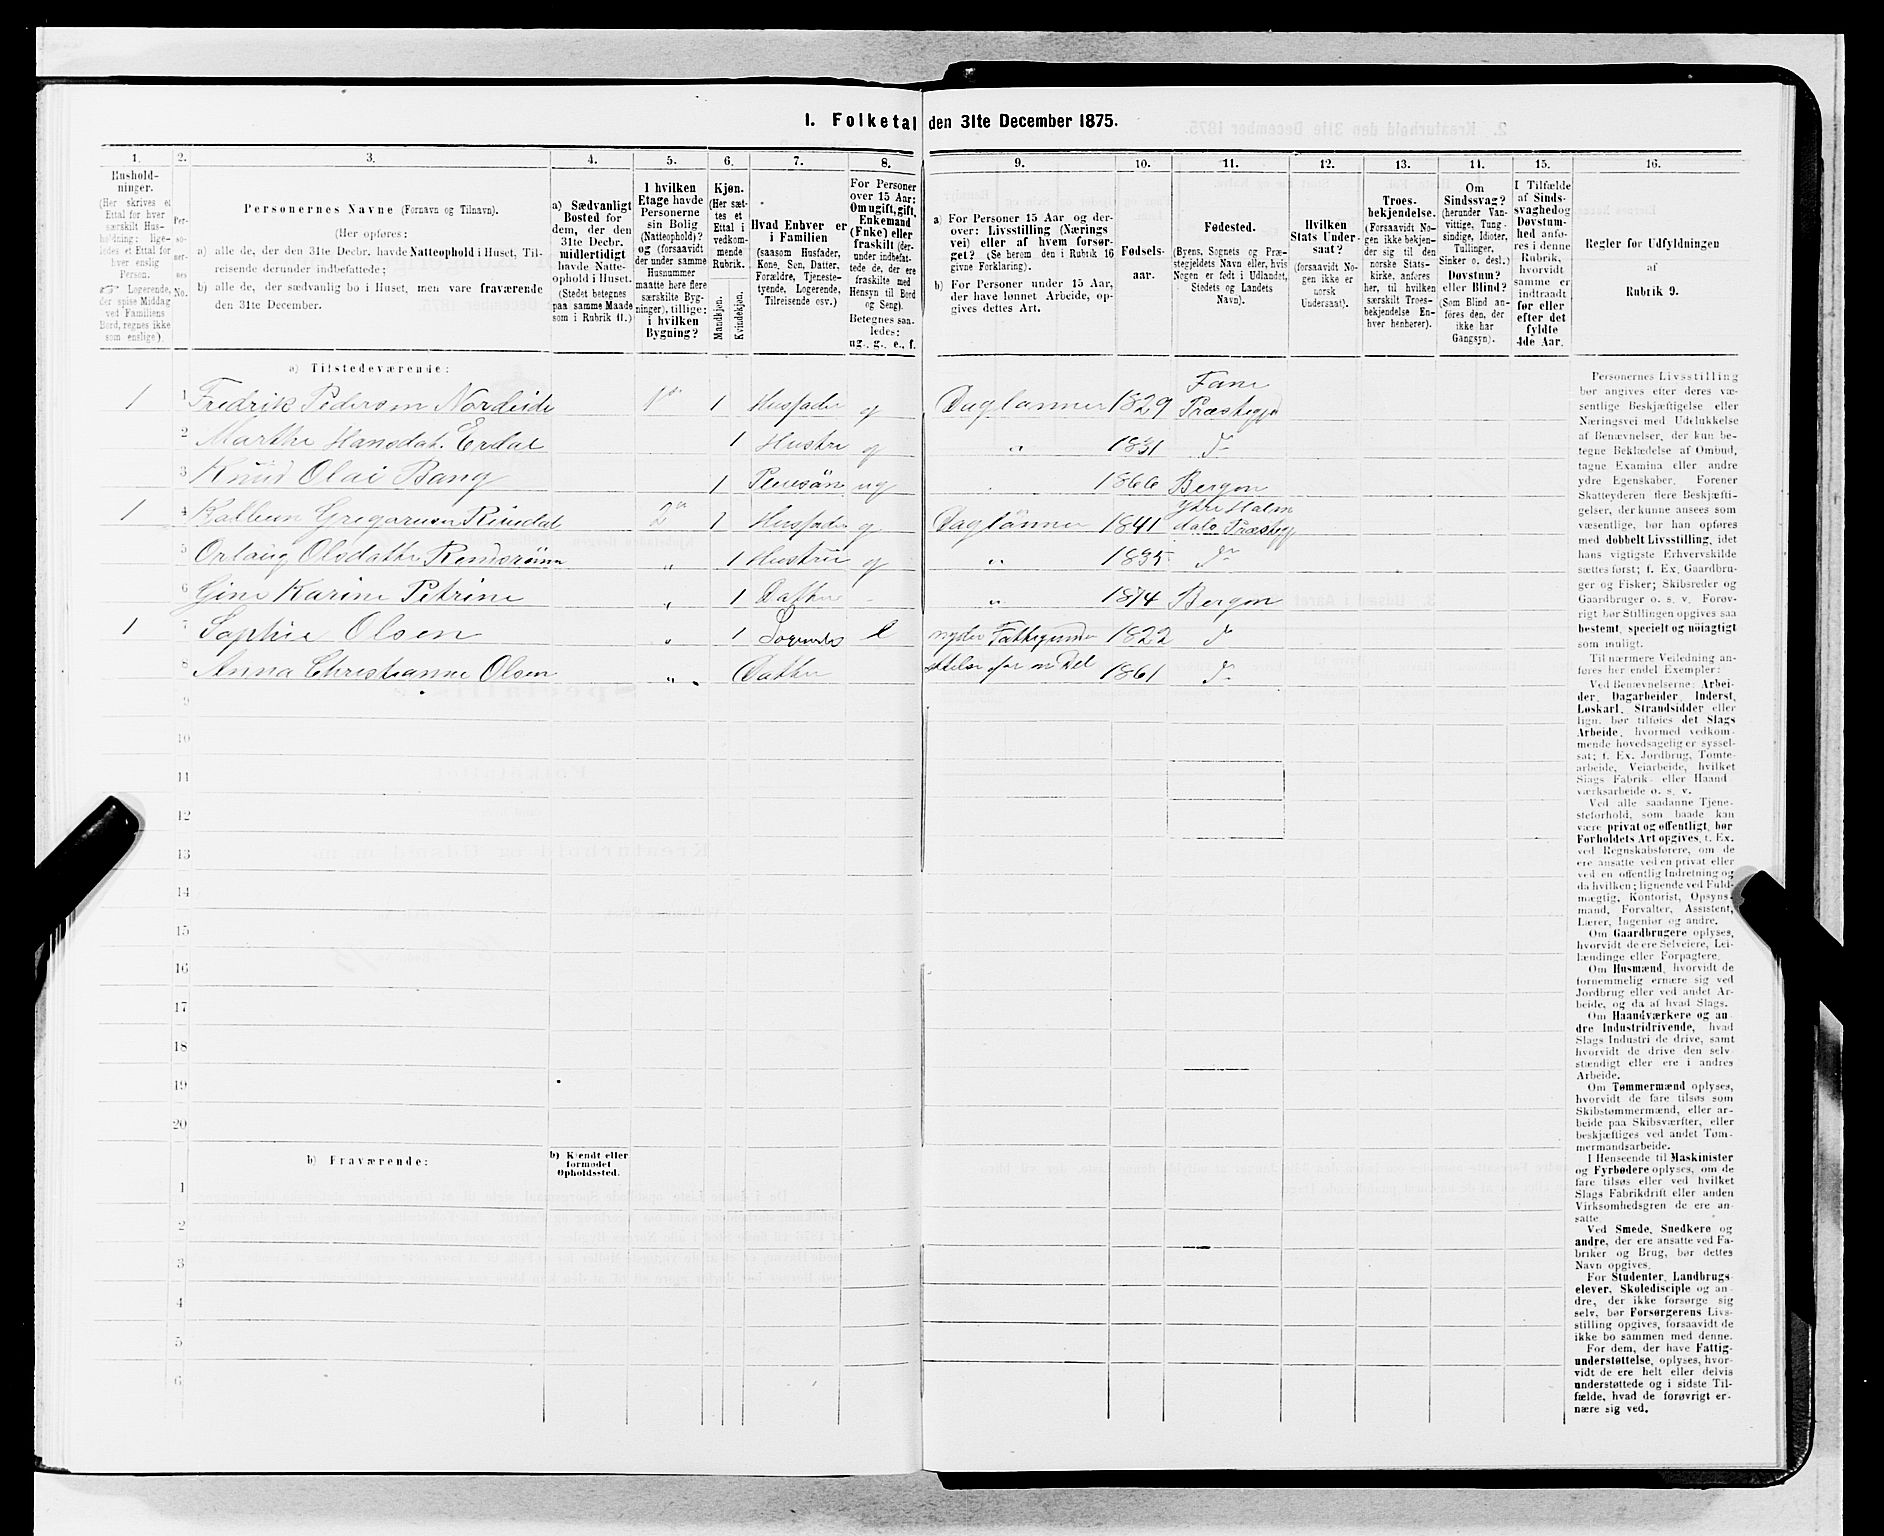 1. Folketal den 31te December 1875.
1. 2. 3. 4. 5. 6. 7. 8. 9. 10. 11. 12. 13. 14. 15. 16.
Husholdninger.
(Her skrives et
Ettal for hver
særskilt Husholdning;
ligeledes et Ettal for
hver enslig
Person.
Logerende,
der spise Middag
ved Familiens
Bord, regnes ikke
som enslige).
Personernes No.
Personernes Navne (Fornavn og Tilnavn).
(Her opføres:
a) alle de, der den 31te Decbr. havde Natteophold i Huset, Tilreisende derunder indbefattede;
b) alle de, der sædvanlig bo i Huset, men vare fraværende
den 31te December.
a) Sædvanligt
Bosted for
dem, der den
31te Decbr.
midlertidigt
havde Natteophold
i Huset.
(Stedet betegnes
paa samme Maade
som i Rubrik 11.)
I hvilken
Etage havde
Personerne
sin Bolig
(Natteophold)?
og (forsaavidt
der under samme
Husnummer
maatte høre flere
særskilte Bygninger),
tillige:
i hvilken
Bygning?
Kjøn.
(Her sættes
et
Ettal i
vedkommende
Rubrik.
Mandkjøn.
Kvindekjøn.
Hvad Enhver er
i Familien
(saasom Husfader,
Kone, Søn, Datter,
Forældre, Tjenestetyende,
Logerende,
Tilreisende osv.)
For Personer
over 15 Aar:
Om ugift, gift,
Enkemand
(Enke) eller
fraskilt (derunder
indbefattede
de, der ere
fraskilte med
Hensyn til Bord
og Seng).
Betegnes saaledes:
ug., g., e., f.
a) For Personer 15 Aar og derover:
Livsstilling (Næringsvei)
eller af hvem forsørget?
(Se herom den i Rubrik 16
givne Forklaring).
b) For Personer under 15 Aar,
der have lønnet Arbeide, opgives
dettes Art.
Fødselsaar.
Fødested.
(Byens, Sognets og Præstegjeldets
Navn eller, hvis
Nogen er født i Udlandet,
Stedets og Landets
Navn).
Hvilken
Stats Undersaat?
(forsaavidt Nogen
ikke er
norsk
Undersaat).
Troesbekjendelse.
(Forsaavidt Nogen
ikke bekjender
sig til den
norske Statskirke,
anføres
her, til hvilken
særskilt Troesbekjendelse
Enhver
henhører).
Om
Sindssvag?
(herunder Vanvittige,
Tungsindige,
Idioter,
Tullinger,
Sinker o. desl.)
Døvstum?
eller Blind?
(Som Blind anføres
den, der
ikke har
Gangsyn).
I Tilfælde
af Sindssvaghed
og
Døvstumhed
anføres
i denne
Rubrik,
hvorvidt
samme er
indtraadt
før eller
efter det
fyldte
4de Aar.
Regler for Udfyldningen
af
Rubrik 9.
a) Tilstedeværende:
1 1 Fredrik Pedersen Nordeide 1 Husfader g Daglønner 1829 Fane Præstegjd
2 Marthe Hansdat. Erdal 1 Hustru g " 1831 do
3 Knud Olai Bang 1 Pleiesøn ug 1866 Bergen
1 4 1 Husfader g Daglønner 1841 Ytre Holmdals Præstegj
5 Olsdatter " 1 Hustru g " 1835 do
6 Gine Karine Petrine " 1 Datter - " 1874 Bergen
1 7 Sophie Olsen " 1 nyder Fattigunder 1822 do
8 Anna Christianne Olsen " Datter støttelse for en Del 1861 do
9
10
11
12
13
14
15
16
17
18
19
20
b) Fraværende:
b) Kjendt eller
formodet
Opholdssted.
1
2
3
4
5
6
Personernes Livsstilling
bør angives efter deres væsentlige
Beskjæftigelse eller
Næringsvei med Udelukkelse
af Benævnelser, der kun betegne
Beklædelse af Ombud,
tagne Examina eller andre
ydre Egenskaber. Forener
Skatteyderen flere Beskjæftigelser,
der kunne ansees som
væsentlige, bør han opføres
med dobbelt Livsstilling, idet
hans vigtigste Erhvervskilde
sættes først; f. Ex. Gaardbruger
og Fisker; Skibsreder og
Gaardbruger o. s. v. Forøvrigt
bør Stillingen opgives saa
bestemt, specielt og nøiagtigt
som muligt.
Til nærmere Veiledning anføres
her endel Exempler:
Ved Benævnelserne: Arbeider,
Dagarbeider, Inderst,
Løskarl, Strandsidder eller
lign. bør tilføies det Slags
Arbeide, hvormed vedkommende
hovedsagelig er sysselsat;
f. Ex. Jordbrug, Tømtearbeide,
Veiarbeide, hvilket
Slags Fabrik- eller Haandværksarbeide
o. s. v.
Ved alle saadanne Tjenesteforhold,
som baade kan
være privat og offentligt, bør
Forholdets Art opgives, f. Ex.
ved Regnskabsførere, om de
ere ansatte ved en privat eller
ved en offentlig Indretning og
da hvilken; lignende ved Fuldmægtig,
Kontorist, Opsynsmand,
Forvalter, Assistent,
Lærer, Ingeniør og andre.
Om Gaardbrugere oplyses,
hvorvidt de ere Selveiere, Leilændinge
eller Forpagtere.
Om Husmænd, hvorvidt de
fornemmelig ernære sig ved
Jordbrug eller ved andet Arbeide,
og da af hvad Slags.
Om Haandværkere og andre
Industridrivende, hvad
Slags Industri de drive, samt
hvorvidt de drive den selvstændigt
eller ere i andres
Arbeide.
Om Tømmermænd oplyses,
hvorvidt de fare tilsøs som
Skibstømmermænd, eller arbeide
paa Skibsværfter, eller
beskjæftiges ved andet Tømmermandsarbeide.
I Henseende til Maskinister
og Fyrbødere oplyses, om de
fare tilsøs eller ved hvilket
Slags Fabrikdrift eller anden
Virksomhedsgren de ere ansatte.
Ved Smede, Snedkere og
andre, der ere ansatte ved Fabriker
og Brug, bør dettes
Navn opgives.
For Studenter, Landbrugselever,
Skoledisciple og andre,
der ikke forsørge sig
selv, bør Forsørgerens Livsstilling
opgives, forsaavidt de
ikke bo sammen med denne.
For dem, der have Fattigunderstøttelse,
oplyses, hvorvidt
de ere helt eller delvis
understøttede og i sidste Tilfælde,
hvad de forøvrigt ernære
sig ved.